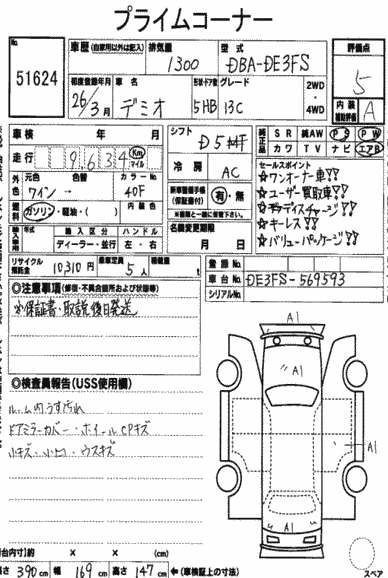 プライムコーナー
No.
51624
車歴 (自家用以外は記入) 排気量 型式
1300 DBA-DE3FS
初度登録年月 車名 形状・ドア数 グレード 2WD・4WD
26/3月 デミオ 5HB 13C
評価点
5
内装補助評価 A
車検 年 月
走行 9634 Km マイル
シフト
冷房 AC
純正品 SR 純AW PS PW
カワ TV ナビ エアB
セールスポイント
☆ワンオーナー車!!
☆ユーザー買取車!!
☆キーレス!!
☆バリューパッケージ!!
外色 元色 色替 カラーNo.
ワイン → 40F
燃料 ガソリン・軽油・( ) 内装色
新車整備手帳(保証書付) 有・無
※書類と一緒に保管下さい
輸入車 輸入区分 ハンドル
ディーラー・並行 左・右
名義変更期限
月 日
リサイクル預託金 10,310円 乗車定員 5人 積載量 t
登録No.
車台No. DE3FS-569593
シリアルNo.
◎注意事項 (修復・不具合箇所および状態等)
保証書・取説 後日発送
◎検査員報告 (USS使用欄)
ルーム内うす汚れ
ドアミラーカバー・ホイールCPキズ
小キズ・小凹・ウスキズ
A1
A1
A1
A1
(荷台内寸)約 × × (cm)
長さ 390cm 幅 169cm 高さ 147cm ←(車検証上の寸法)
スペア